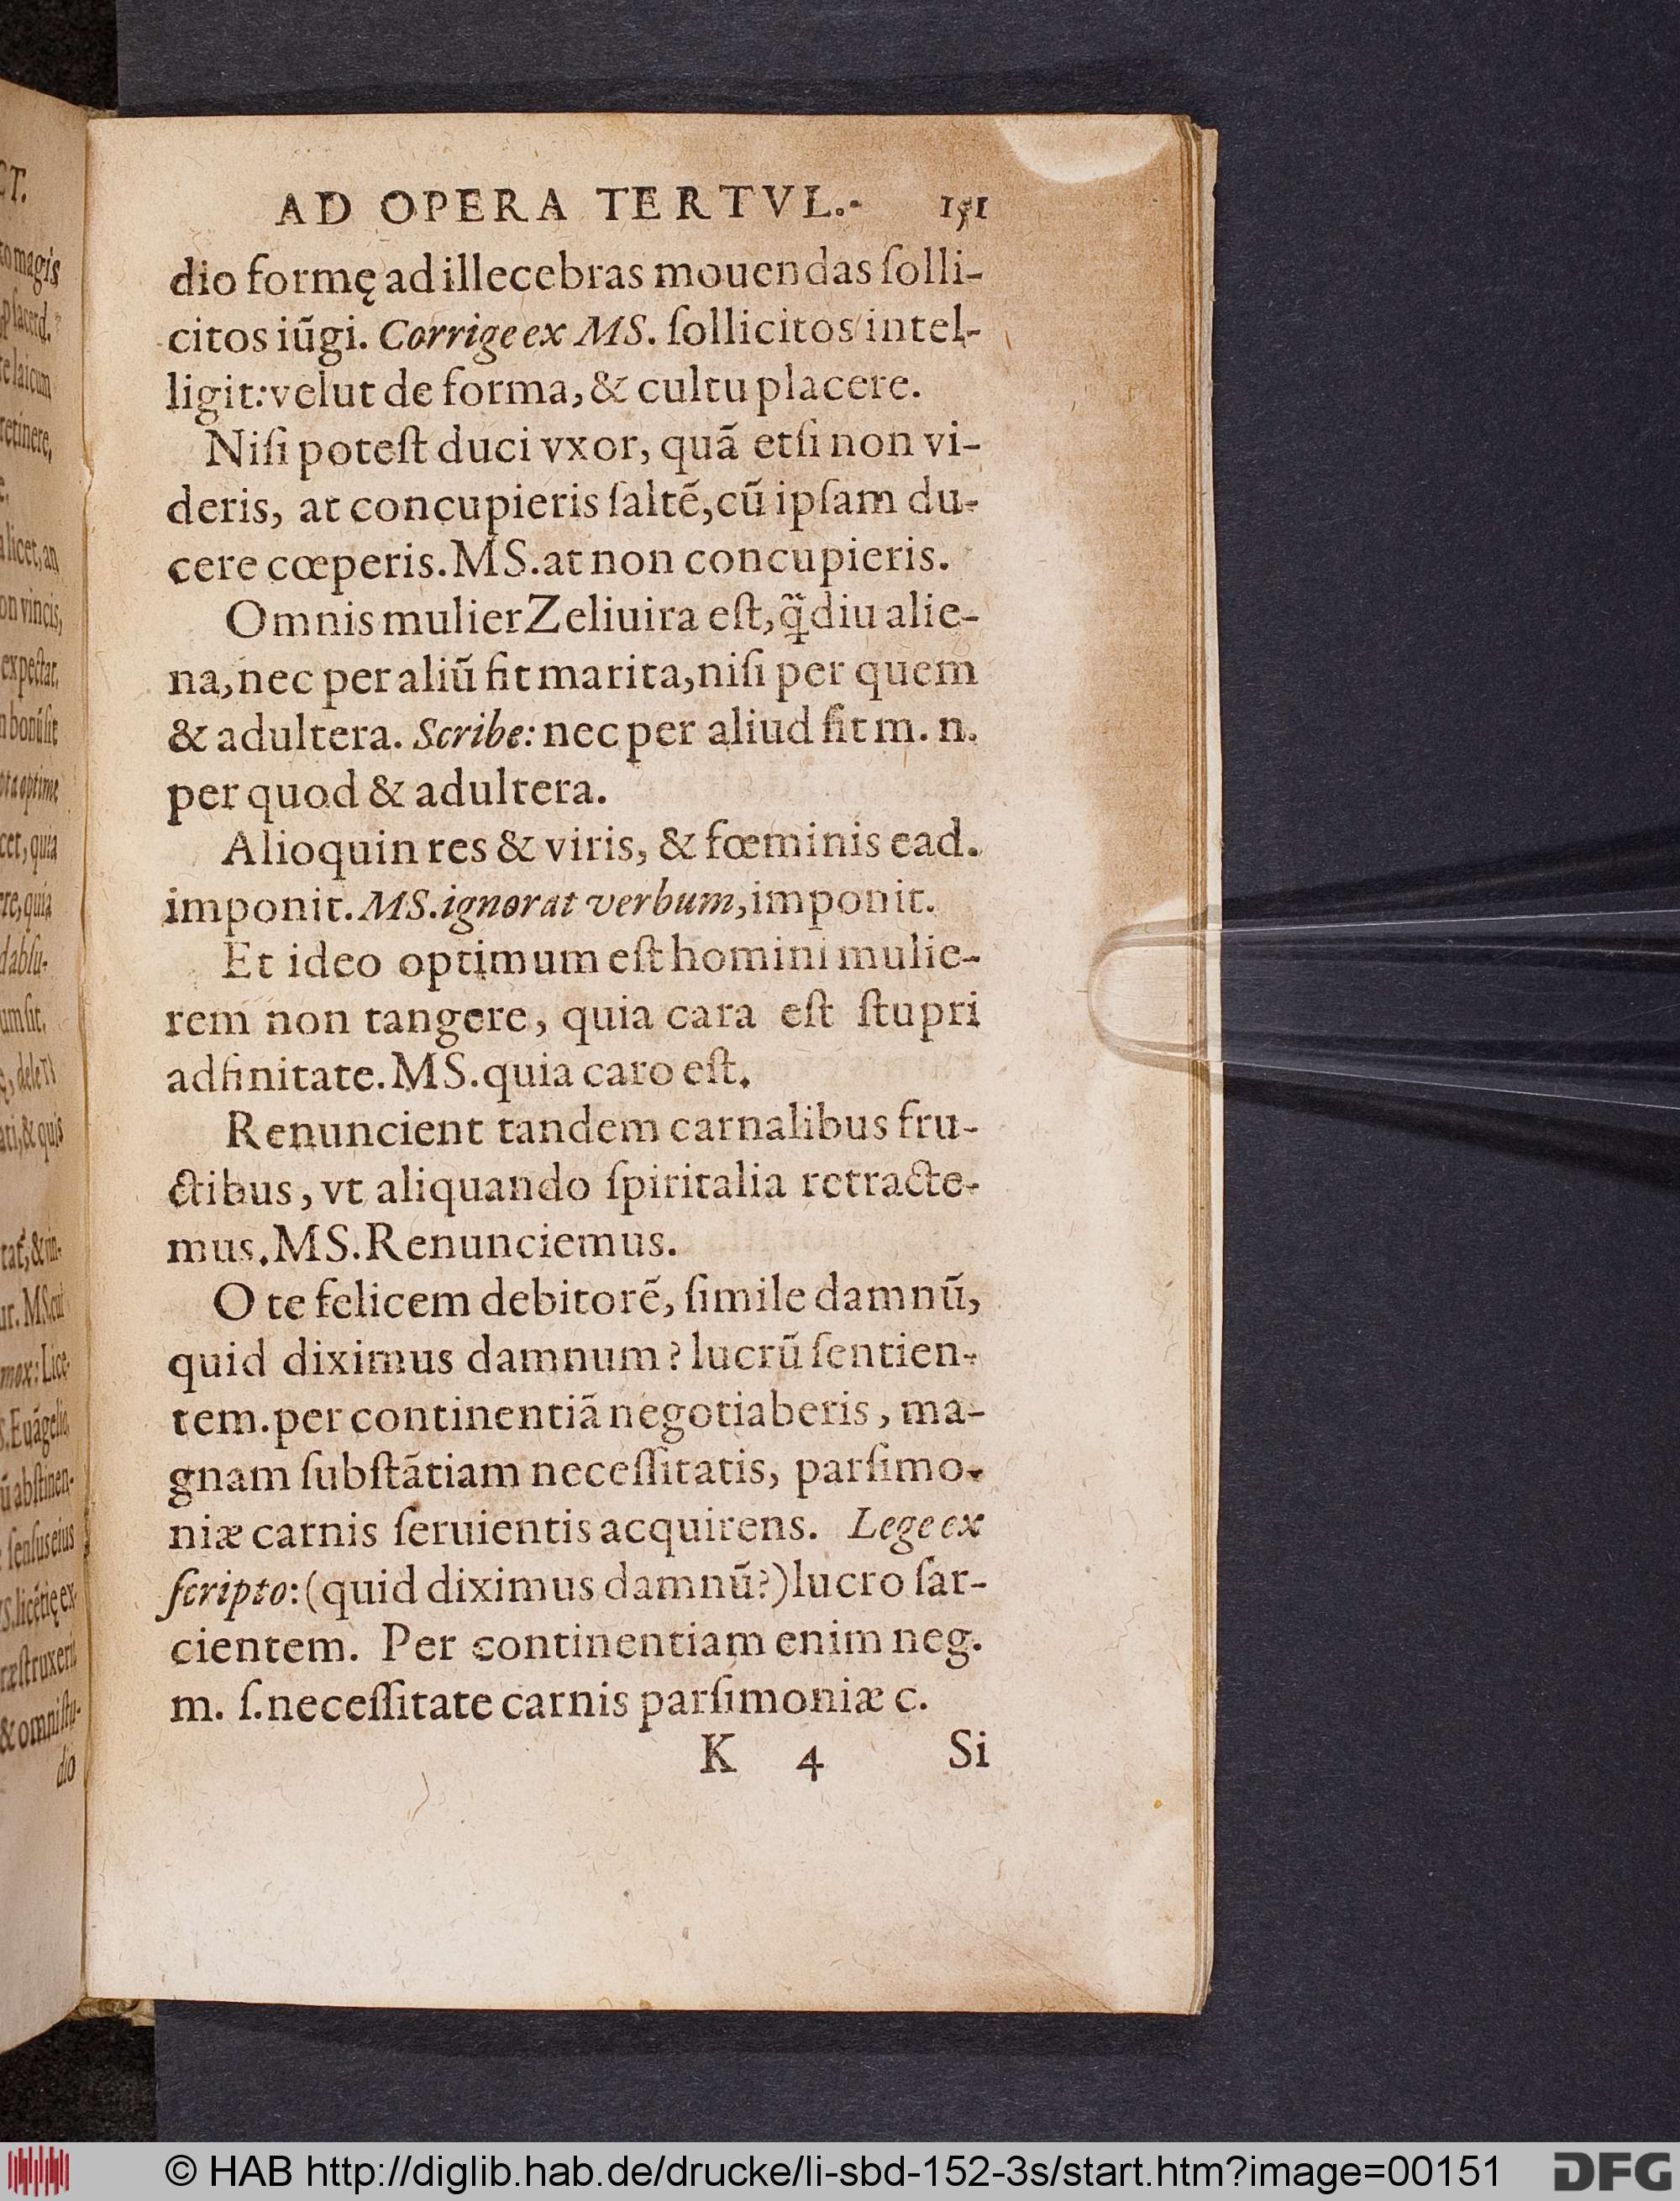 AD OPERA TERTVL. 151
dio formę ad illecebras mouendas ſolli-
citos iũgi. Corrige ex MS. ſollicitos intel-
ligit: velut de forma, & cultu placere.
Niſi poteſt duci vxor, quã etſi non vi-
deris, at concupieris ſaltẽ, cũ ipſam du-
cere cœperis. MS. at non concupieris.
Omnis mulier Zeliuira eſt, q̃diu alie-
na, nec per aliũ fit marita, niſi per quem
& adultera. Scribe: nec per aliud fit m. n.
per quod & adultera.
Alioquin res & viris, & fœminis ead.
imponit. MS. ignorat verbum, imponit.
Et ideo optimum eſt homini mulie-
rem non tangere, quia cara eſt ſtupri
adfinitate. MS. quia caro eſt.
Renuncient tandem carnalibus fru-
ctibus, vt aliquando ſpiritalia retracte-
mus. MS. Renunciemus.
O te felicem debitorẽ, ſimile damnũ,
quid diximus damnum? lucrũ ſentien-
tem. per continentiã negotiaberis, ma-
gnam ſubſtãtiam neceſſitatis, parſimo-
niæ carnis ſeruientis acquirens. Lege ex
ſcripto: (quid diximus damnũ?) lucro ſar-
cientem. Per continentiam enim neg.
m. ſ. neceſſitate carnis parſimoniæ c.
K 4 Si
© HAB http://diglib.hab.de/drucke/li-sbd-152-3s/start.htm?image=00151
DFG